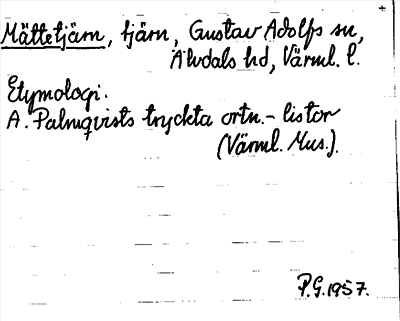 Mättetjärn, tjärn, Gustav Adolfs sn,
Älvdals hd, Värml. l.
Etymologi.
A. Palmqvists tryckta ortn.- listor
(Värml. Mus.).
P.G. 1957.